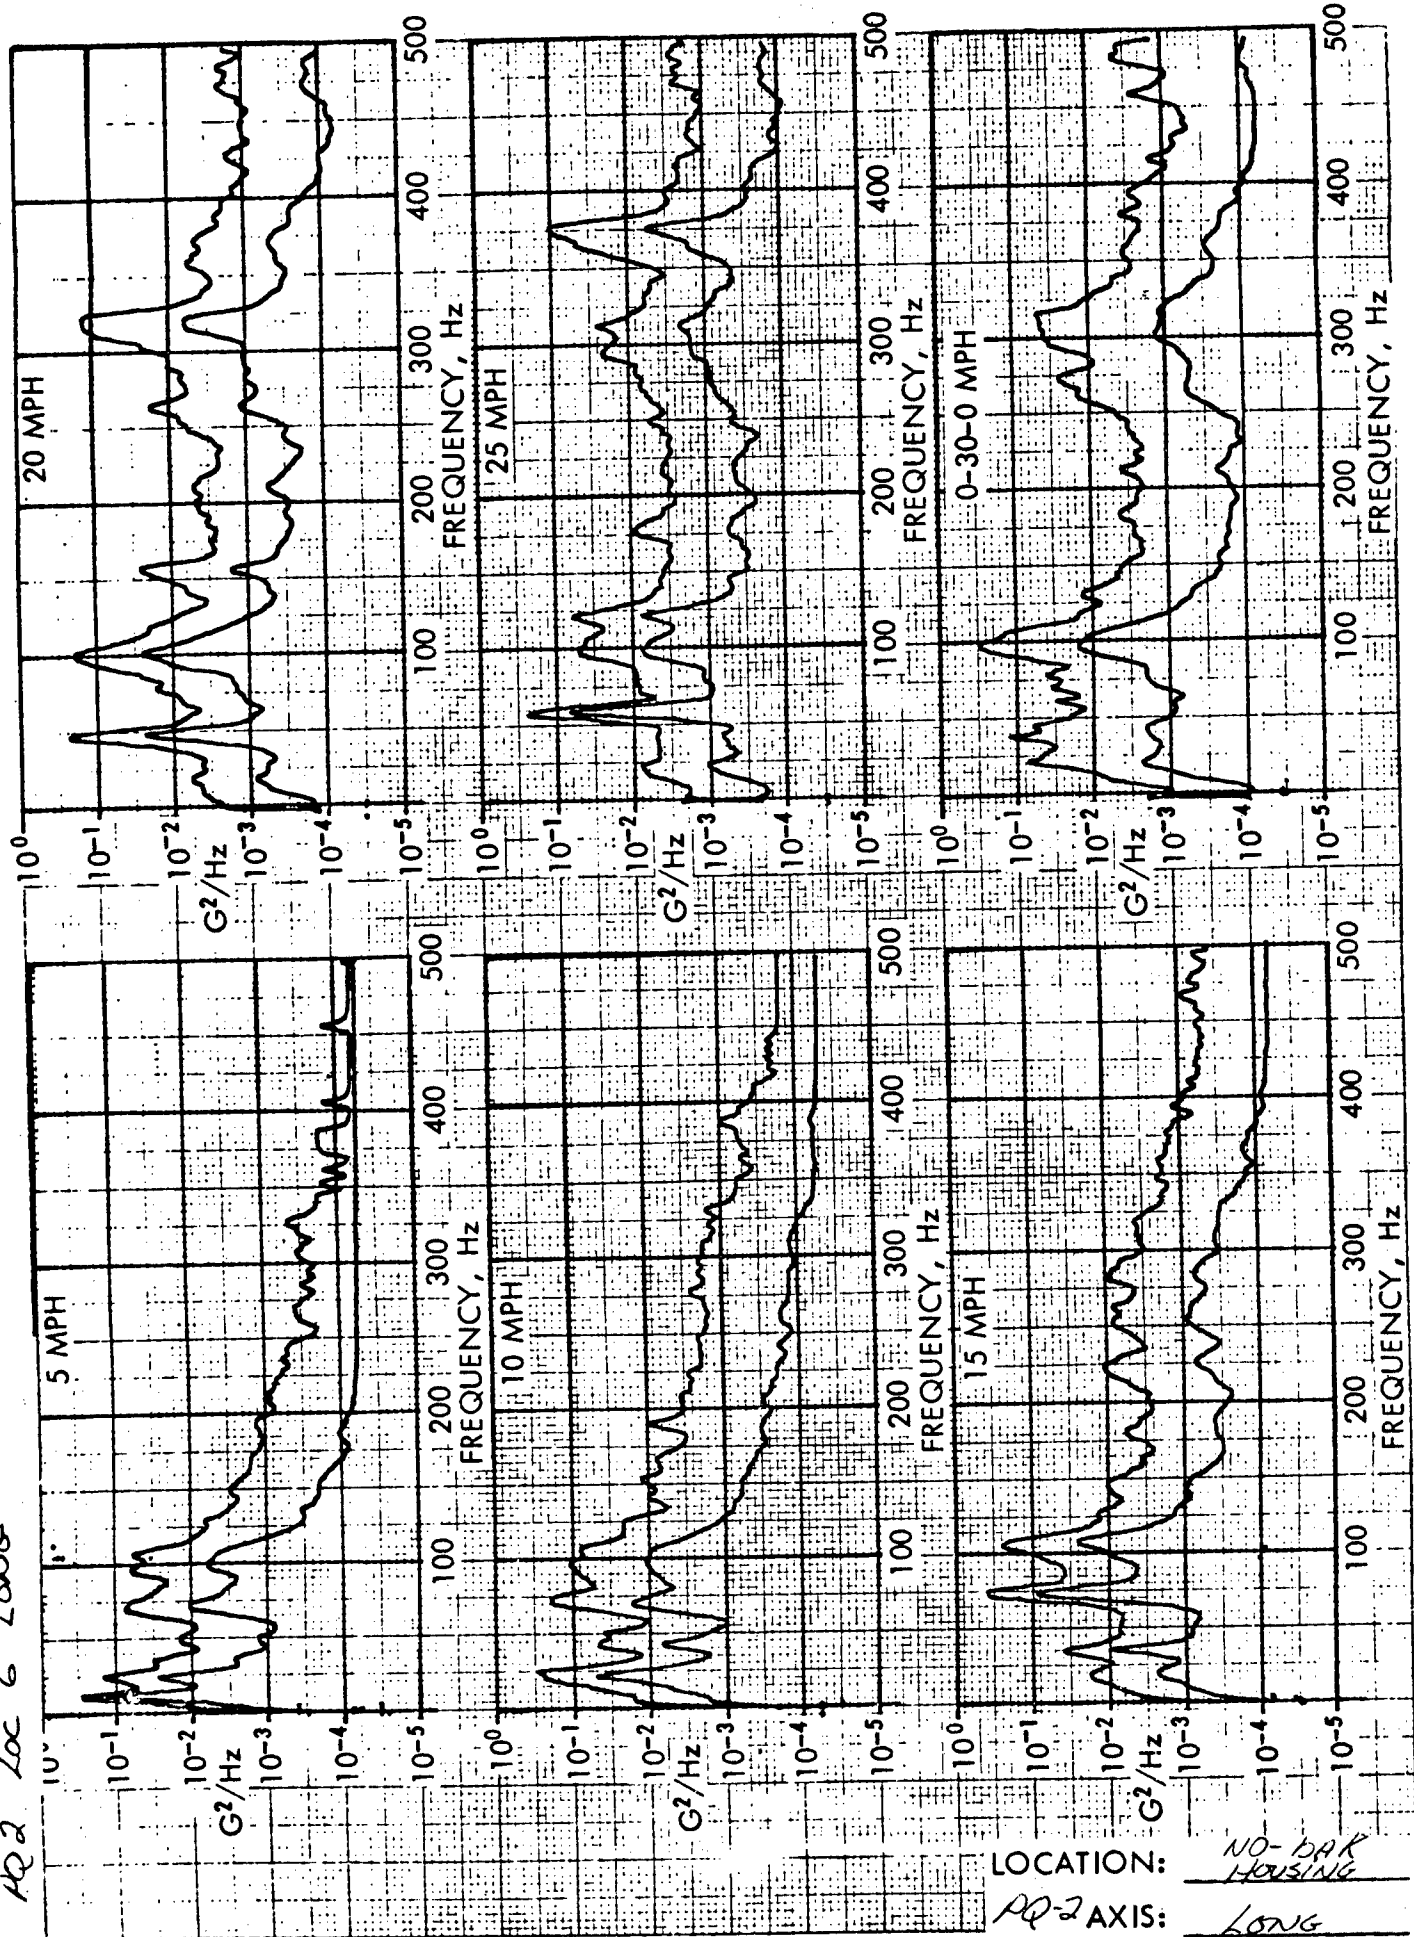 PQ2 LOC 6 LONG
5 MPH
G²/Hz
10⁻¹
10⁻²
10⁻³
10⁻⁴
10⁻⁵
100
200
300
400
500
FREQUENCY, Hz
20 MPH
G²/Hz
10⁰
10⁻¹
10⁻²
10⁻³
10⁻⁴
10⁻⁵
100
200
300
400
500
FREQUENCY, Hz
10 MPH
G²/Hz
10⁰
10⁻¹
10⁻²
10⁻³
10⁻⁴
10⁻⁵
100
200
300
400
500
FREQUENCY, Hz
25 MPH
G²/Hz
10⁰
10⁻¹
10⁻²
10⁻³
10⁻⁴
10⁻⁵
100
200
300
400
500
FREQUENCY, Hz
15 MPH
G²/Hz
10⁰
10⁻¹
10⁻²
10⁻³
10⁻⁴
10⁻⁵
100
200
300
400
500
FREQUENCY, Hz
0-30-0 MPH
G²/Hz
10⁰
10⁻¹
10⁻²
10⁻³
10⁻⁴
10⁻⁵
100
200
300
400
500
FREQUENCY, Hz
LOCATION: NO-DAK
HOUSING
PQ-2 AXIS: LONG